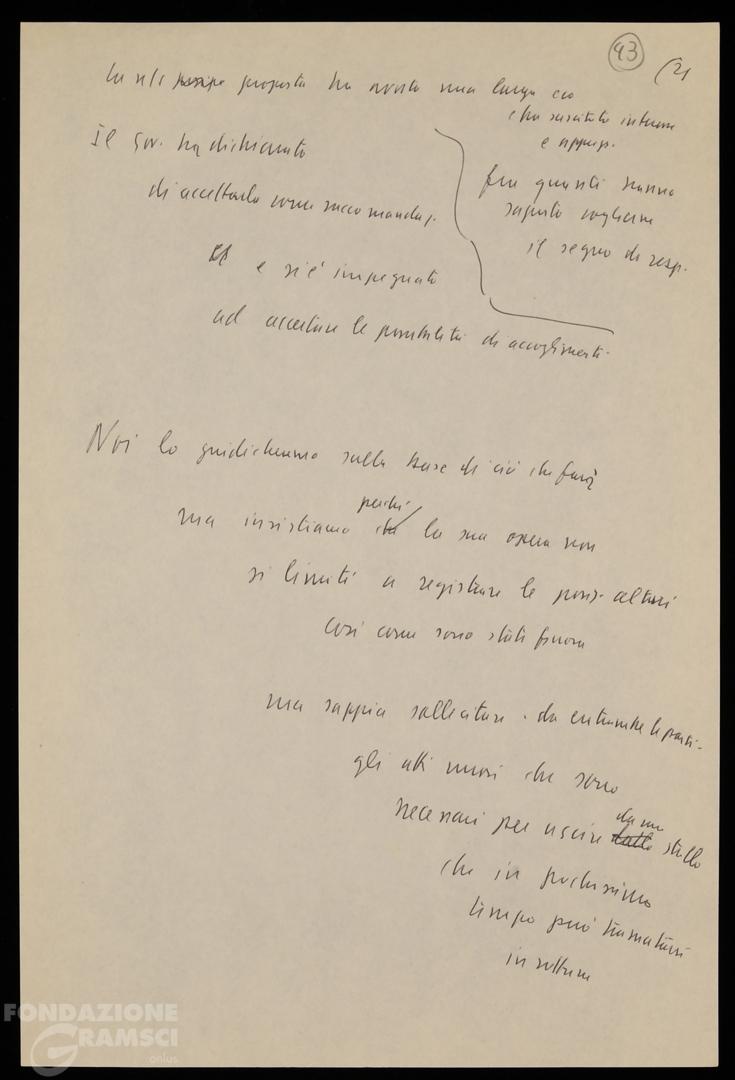 93
(21
proposta ha avuto una larga eco
e ha suscitato interesse
e appogg.
Il gov. ha dichiarato
di accettarla come raccomandaz.
fra quanti hanno
saputo cogliere
il segno di resp.
e si è impegnato
ad accertare le possibilità di accoglimenti.
Noi lo giudicheremo sulla base di ciò che farà
perché
ma insistiamo la sua opera non
si limiti a registrare le posiz. altrui
così come sono state finora
ma sappia sollecitare - da entrambe le parti -
gli atti nuovi che sono
necessari per uscire da uno stallo
che in pochissimo
tempo può tramutarsi
in rottura
FONDAZIONE
GRAMSCI
onlus